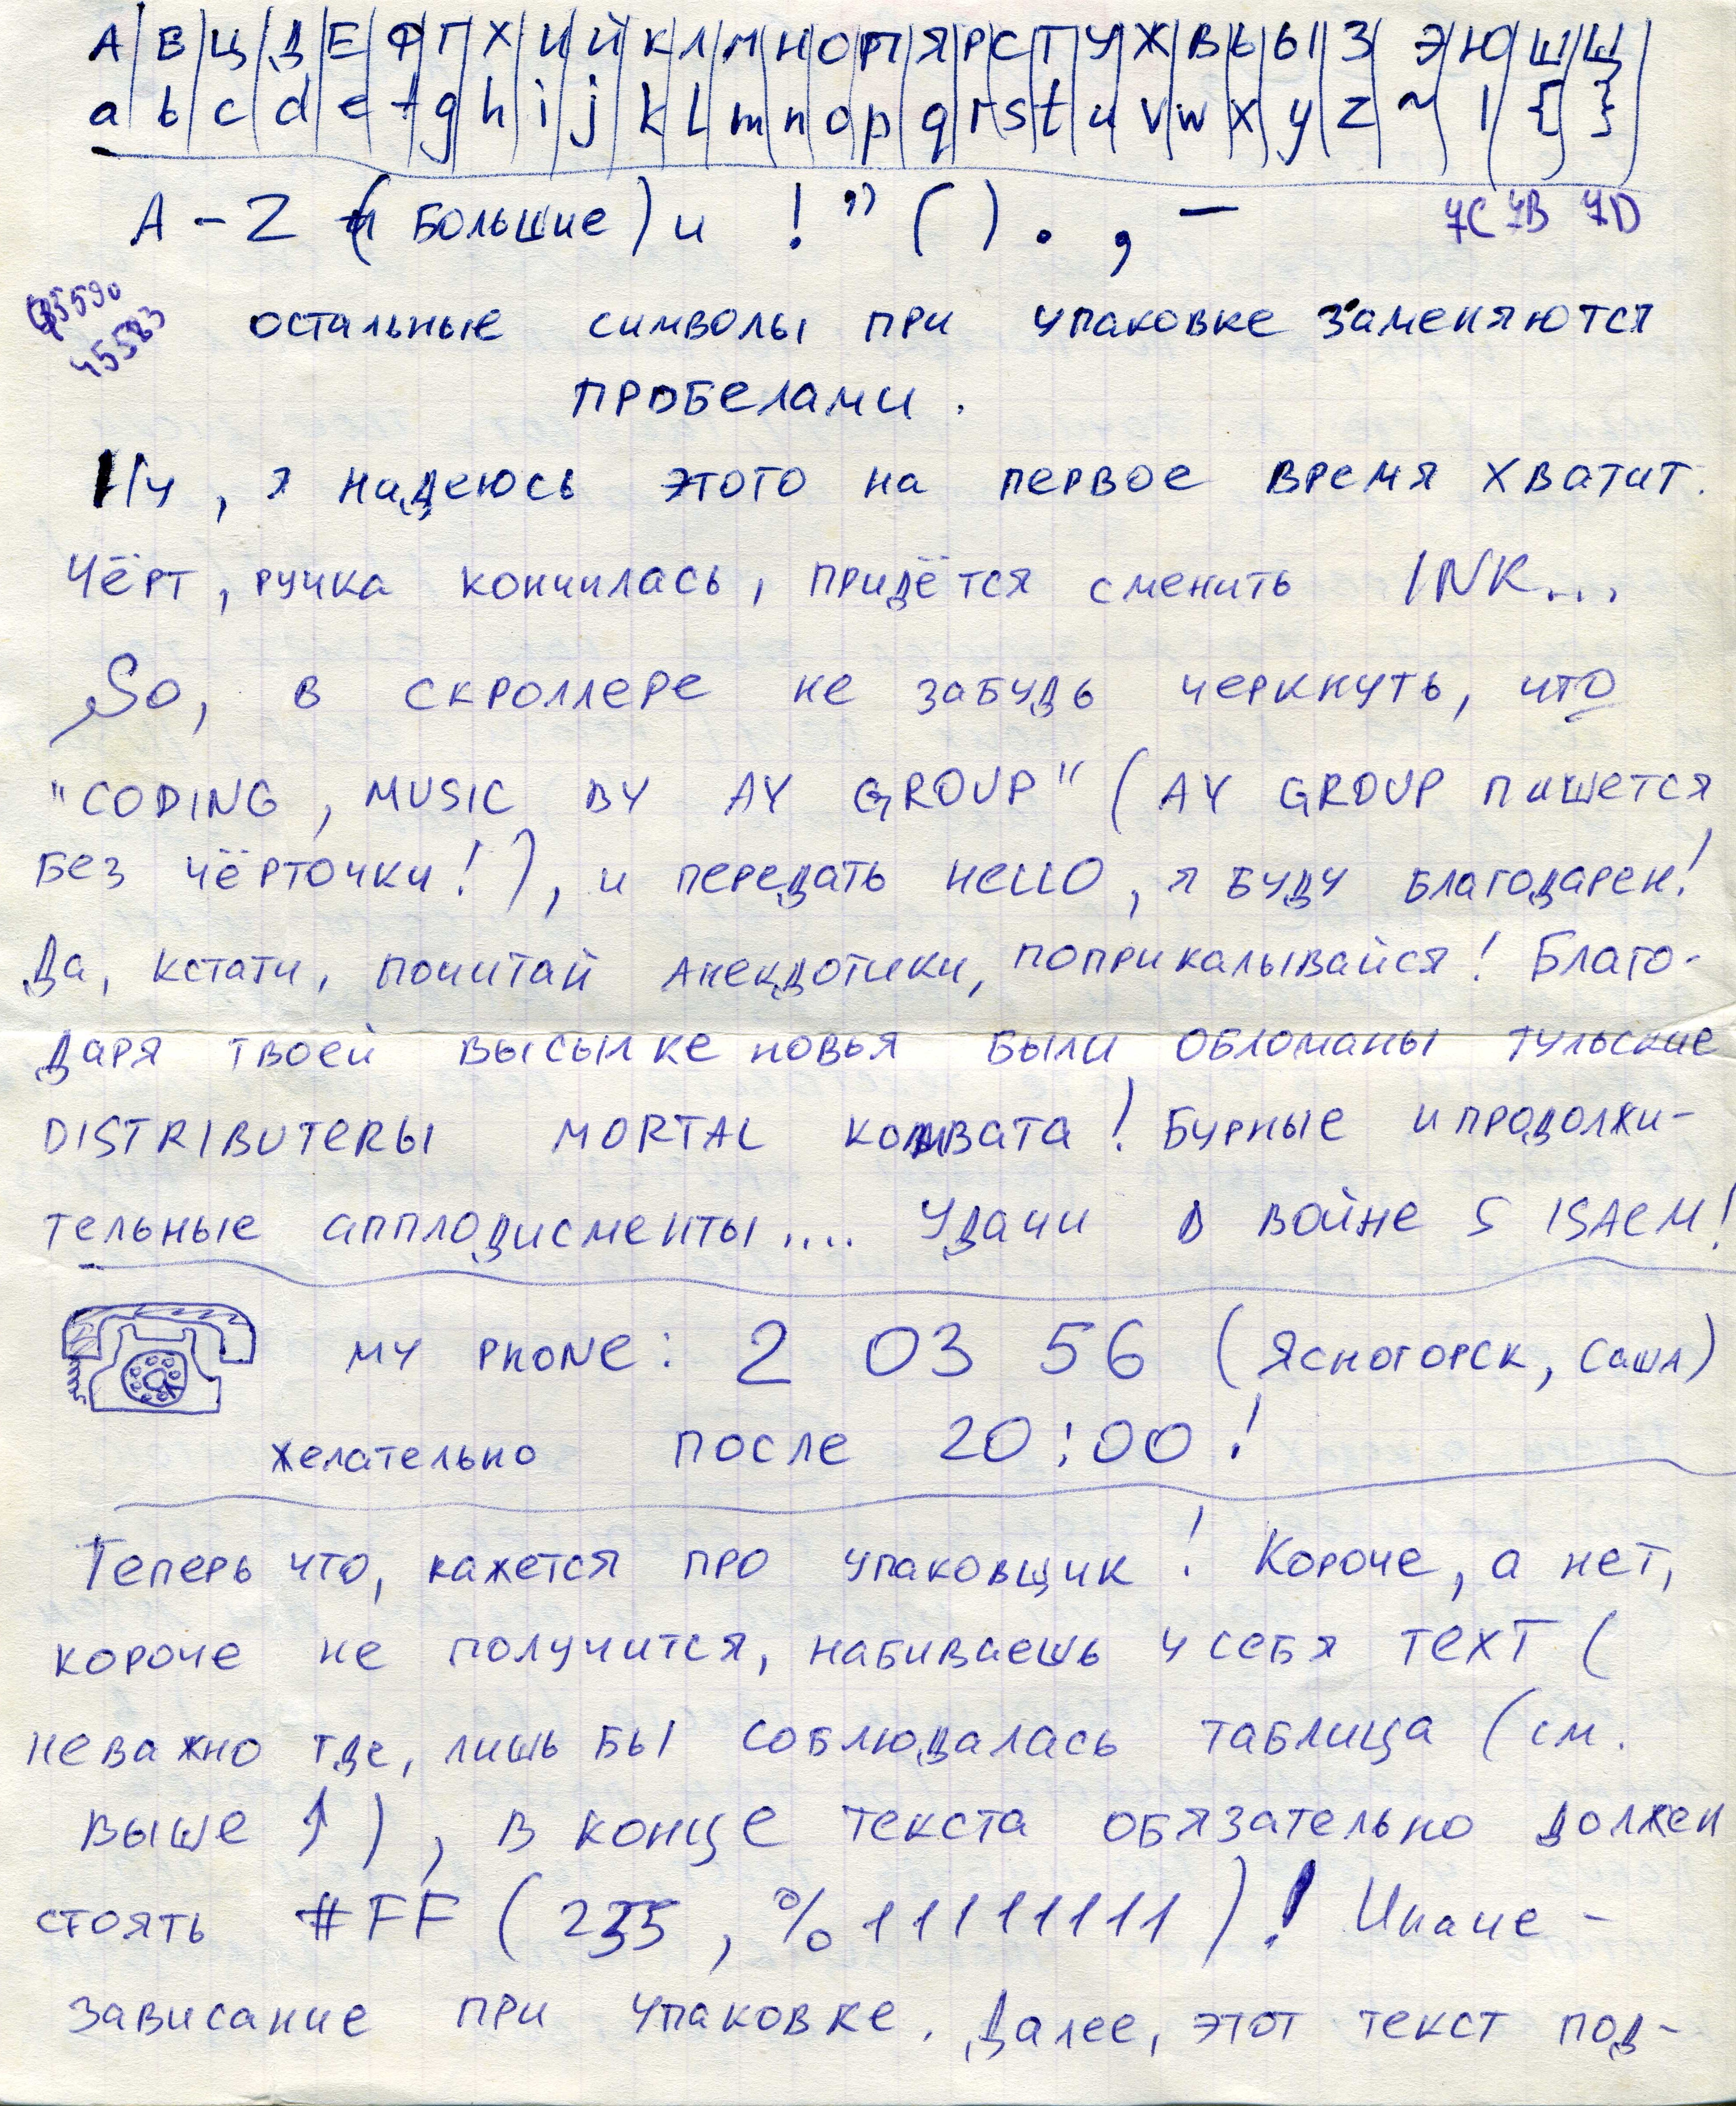 А Б Ц Д Е Ф Г Х И Й К Л М Н О П Я Р С Т У Ж В Ь Ы З Э Ю Ш Щ
a b c d e f g h i j k l m n o p q r s t u v w x y z ~ | { }
A - Z (большие) и ! " ( ) . , —
7C 7B 7D
45583
остальные символы при упаковке заменяются
пробелами.
Ну, я надеюсь этого на первое время хватит.
Чёрт, ручка кончилась, придётся сменить INK...
So, в скроллере не забудь черкнуть, что
"CODING, MUSIC BY AY GROUP" (AY GROUP пишется
без чёрточки!), и передать HeLLO, я буду благодарен!
Да, кстати, почитай анекдотики, поприкалывайся! Благо-
даря твоей высылке новья были обломаны тульские
DISTRIBUTeRы MORTAL комвата! Бурные и продолжи-
тельные апплодисменты.... Удачи в войне S ISAEM!
MY PHONE: 2 03 56 (Ясногорск, Саша)
желательно после 20:00!
Теперь что, кажется про упаковщик! Короче, а нет,
короче не получится, набиваешь у себя TEXT (
неважно где, лишь бы соблюдалась таблица (см.
выше ↑), в конце текста обязательно должен
стоять #FF (255, %11111111)! Иначе -
зависание при упаковке. Далее, этот текст под-